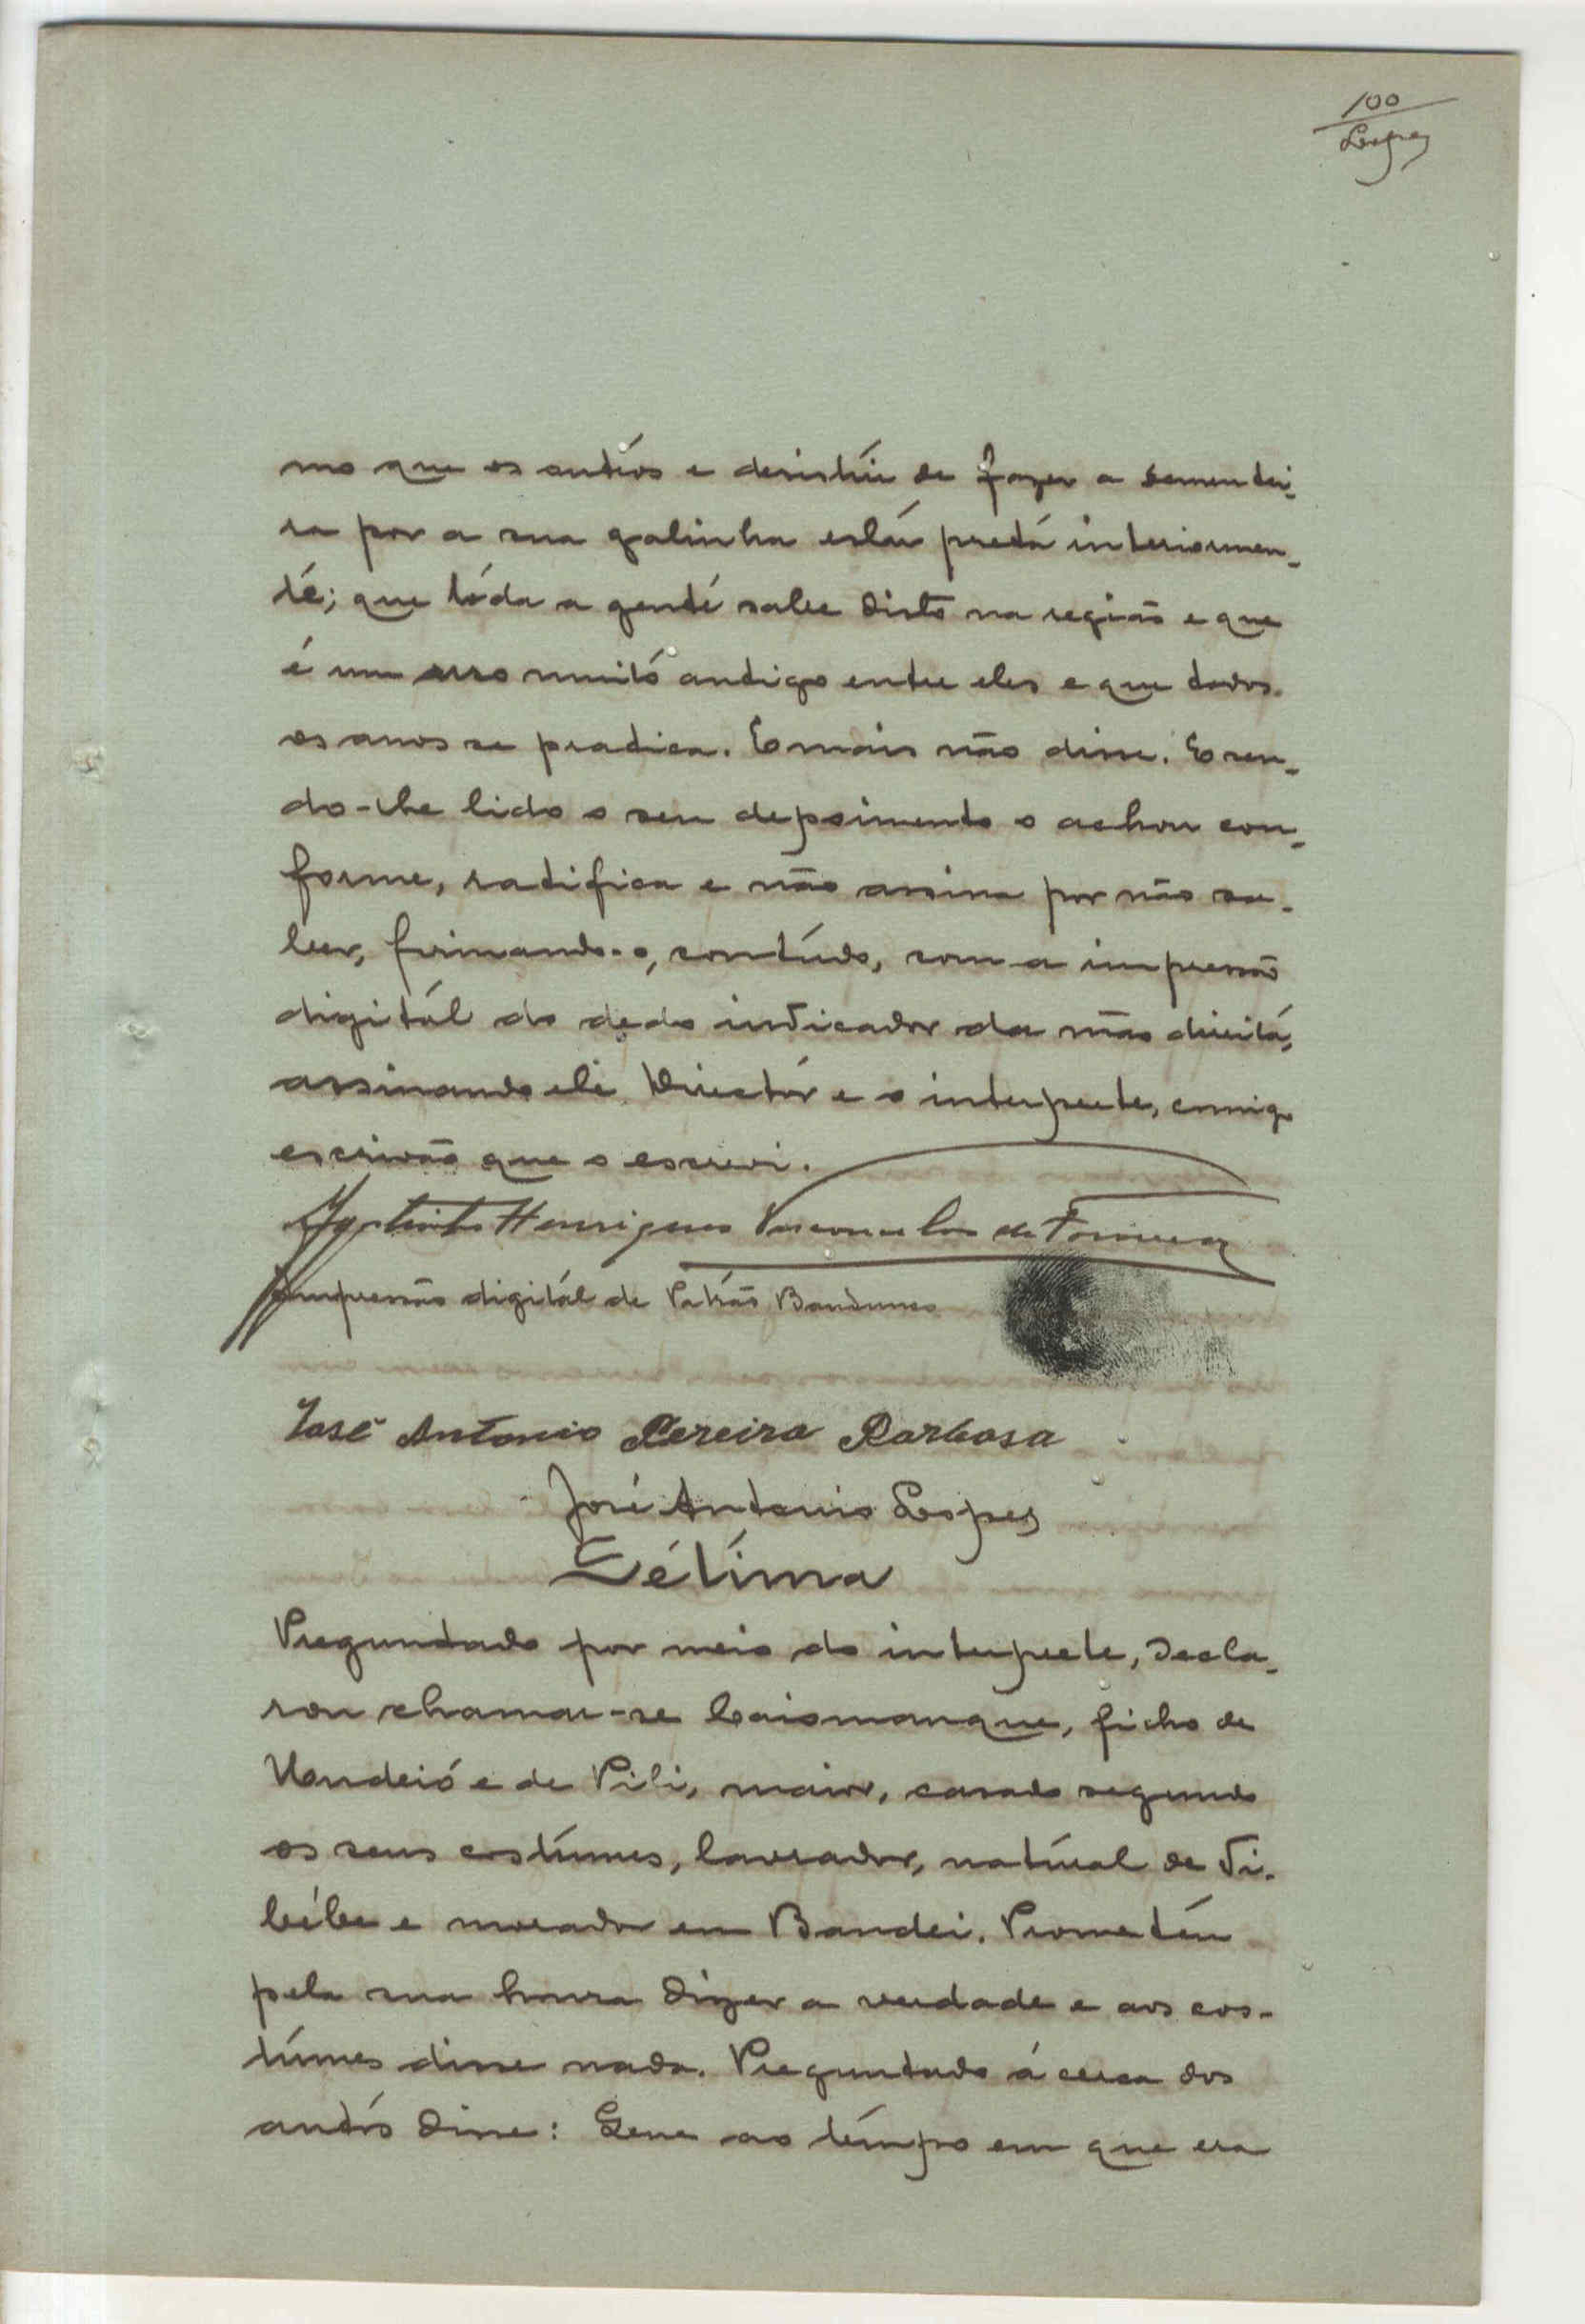 100
Lopes
mo que os outros e desistiu de fazer a sementei-
ra por a sua galinha estar preta interiormen-
te; que toda a gente sabe disto na região e que
é um uso muito antigo entre eles e que todos
os anos se pratica. E mais não disse. E sen-
do-lhe lido o seu depoimento o achou con-
forme, ratifica e não assina por não sa-
ber, firmando-o, contudo, com a impressão
digitál do dedo indicador da mão direita,
assinando ele Director e o interprete, comigo
escrivão que o escrevi.
Henriques Vasconcelos da Fonseca
Impressão digitál de
José Antonio Pereira Barbosa
José Antonio Lopes
Sétima
Preguntado por meio do interprete, decla-
rou chamar-se Caiomanque, filho de
e de Pili, maior, casado segundo
os seus costúmes, lavrador, natúral de
e morador em Bandei. Prometeu
pela sua honra dizer a verdade e aos cos-
túmes disse nada. Preguntado á cerca dos
autos disse: que ao tempo em que era